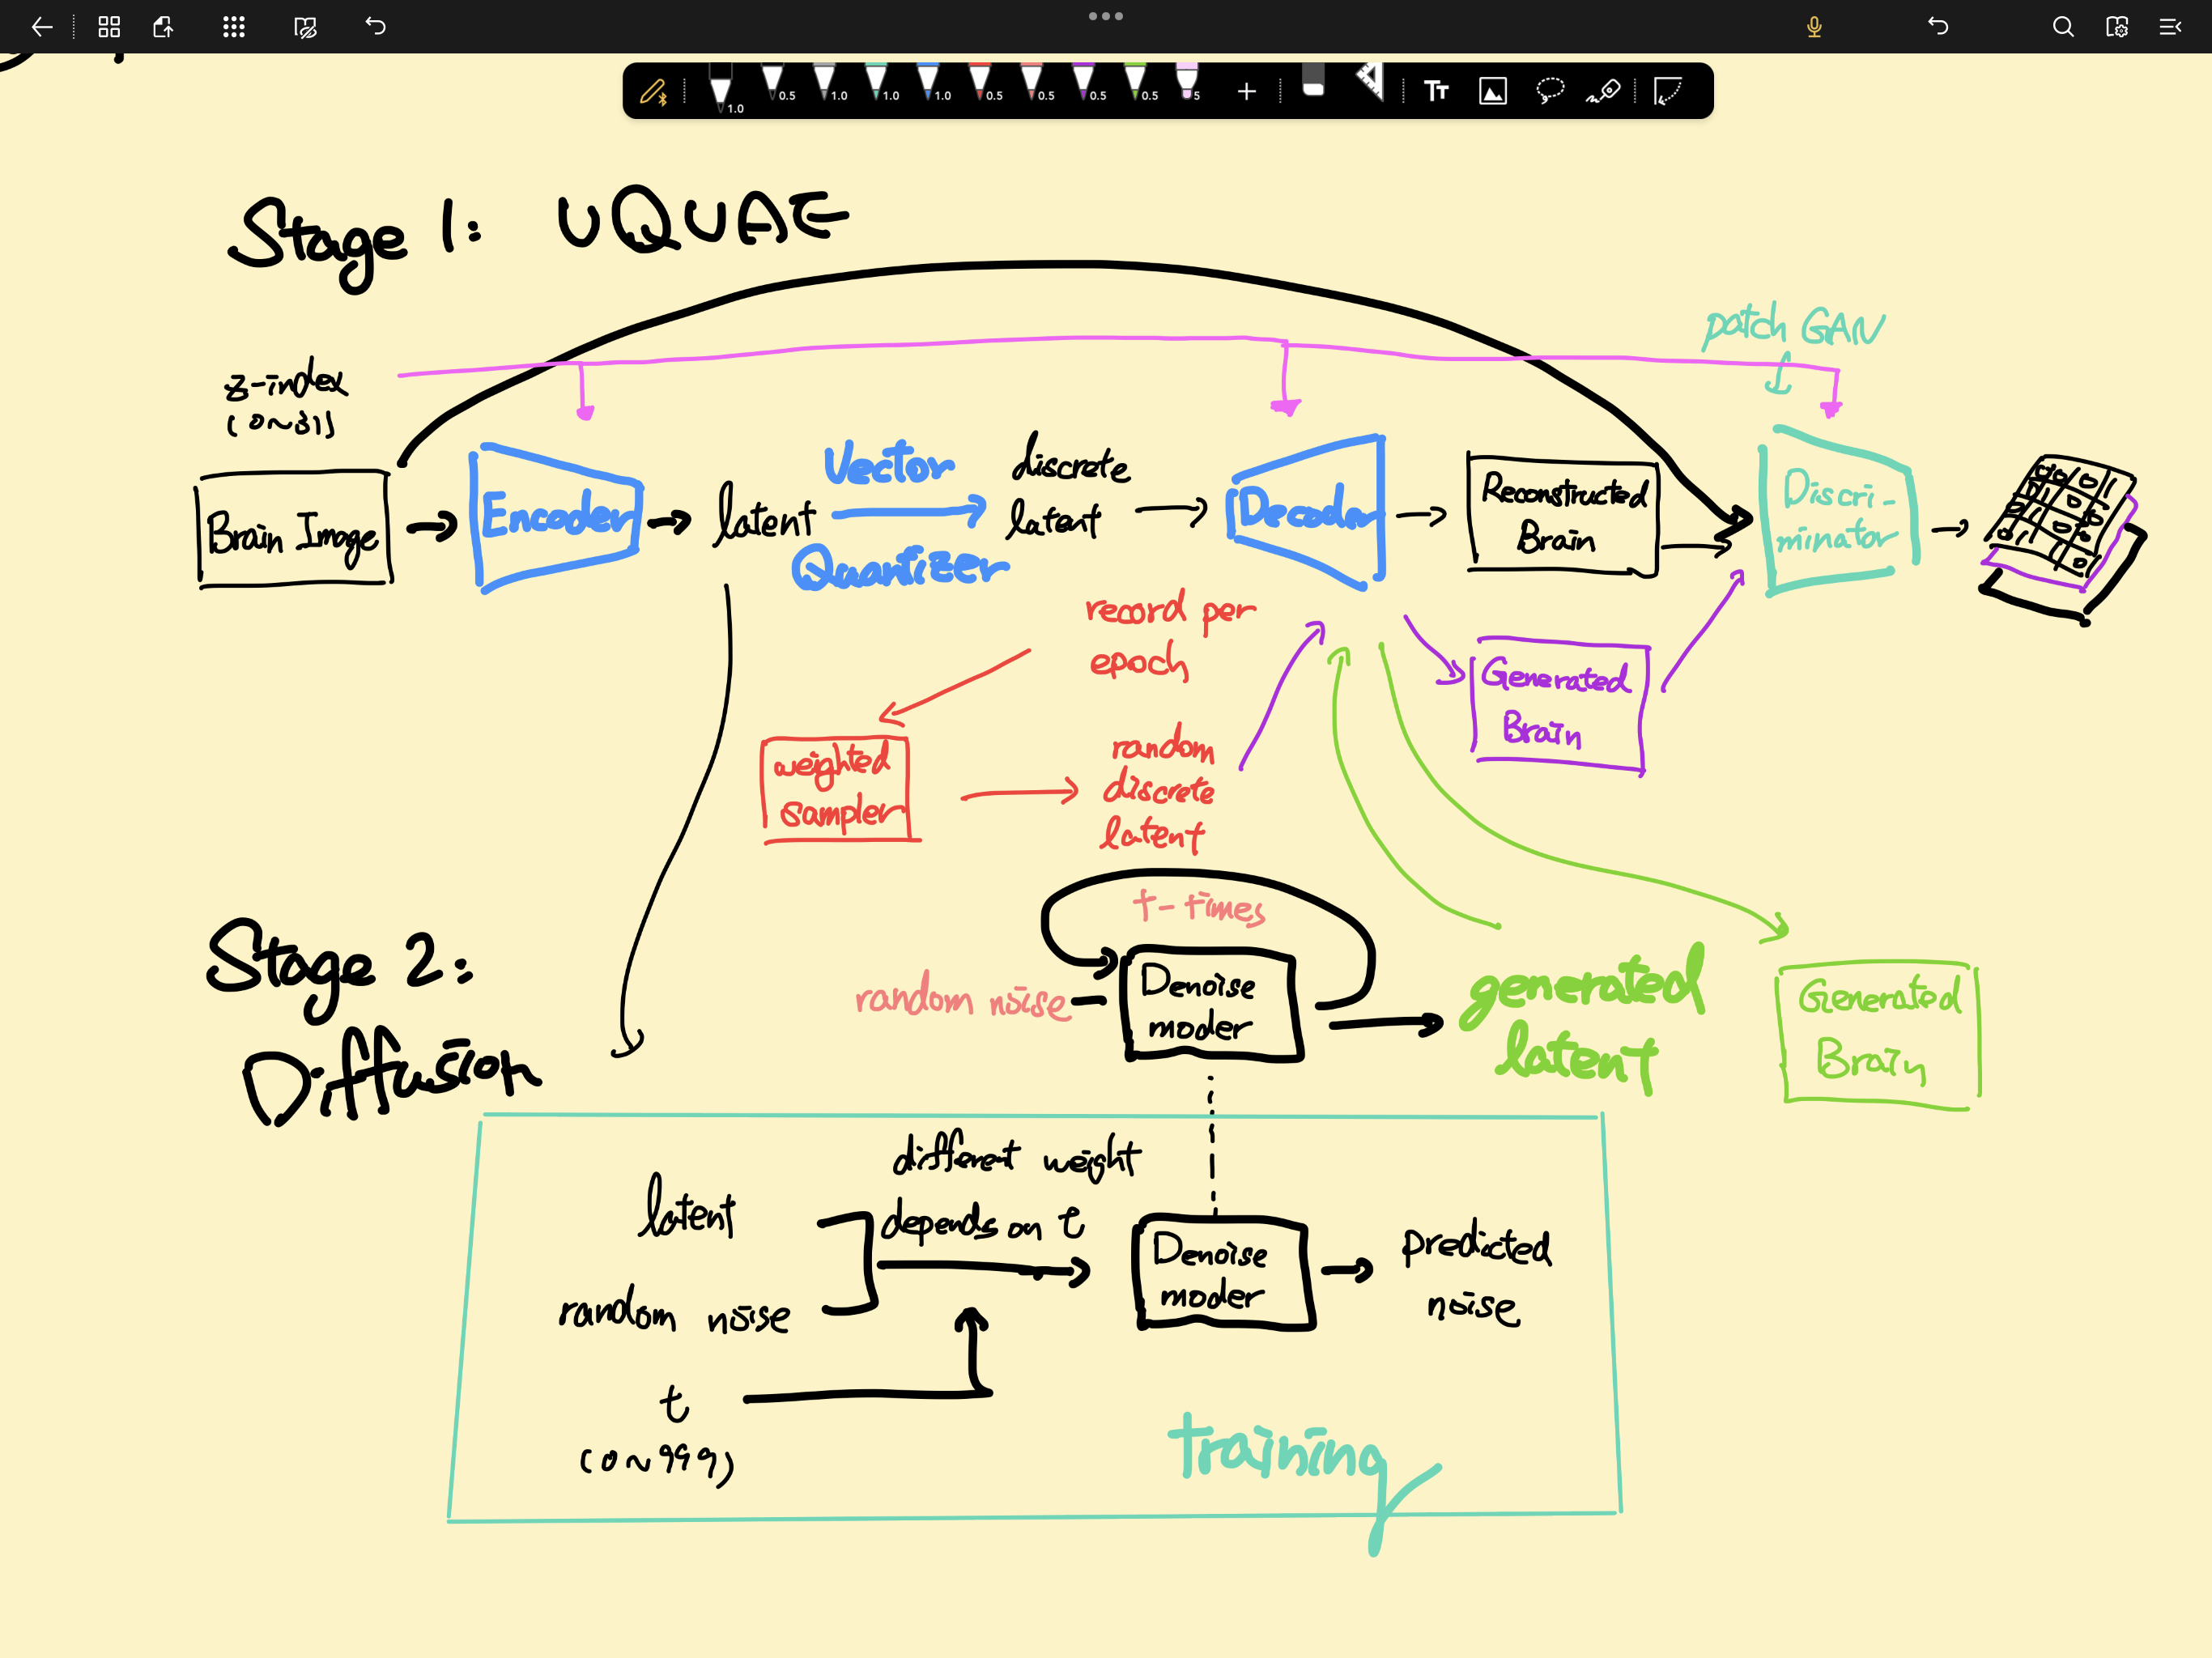 1.0
0.5
1.0
1.0
1.0
0.5
0.5
0.5
0.5
5
Tt
Stage 1: VQVAE
patch GAN
z-index
(0~31)
Brain Image
Encoder
latent
Vector
Quantizer
discrete
latent
Decoder
Reconstructed
Brain
Discri-
minator
record per
epoch
weighted
sampler
random
discrete
latent
Generated
Brain
Stage 2:
Diffusion
t-times
random noise
Denoise
moder
generated
latent
Generated
Brain
latent
random noise
t
(0~999)
different weight
depends on t
Denoise
moder
predicted
noise
training